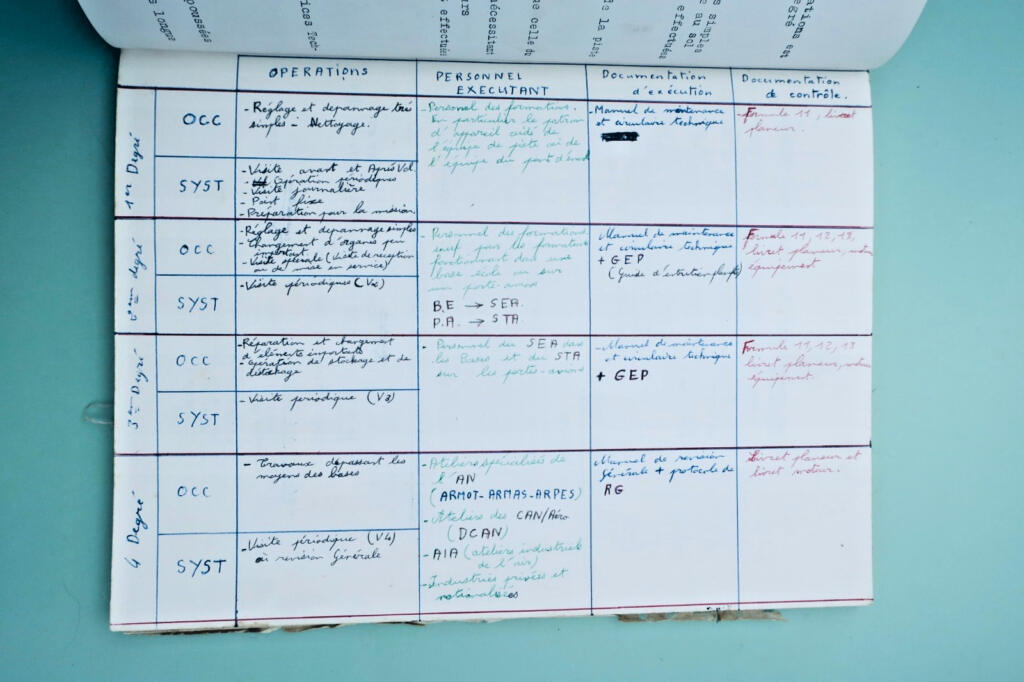 ations est
egré
s simples
e au sol
effectués
de la piste
ue celle du
nécessitant
urs
s effectués
ices Tech-
poussées
s longue
OPERATIONS
PERSONNEL
EXECUTANT
Documentation
d'exécution
Documentation
de contrôle.
1er Degré
OCC
- Réglage et depannage très
simples - Nettoyage.
- Personnel des formations.
En particulier le patron
d'appareil aidé de
l'équipe de piste ou de
l'équipe du pont d'envol
- Manuel de maintenance
et circulaire technique
- Formule 11, livret
planeur.
SYST
- Visite avant et Après Vol.
- Opération périodiques
- Visite journalière
- Point fixe
- Préparation pour la mission.
degré
OCC
- Réglage et depannage simples
- Changement d'organes peu
important
- Visite spéciale (Visite de reception
ou de mise en service)
- Personnel des formations
sauf pour les formations
fonctionnant dans une
base école ou sur
un porte-avions
B.E → SEA.
P.A. → STA.
Manuel de maintenance
et circulaire techniques
+ GEP
(Guide d'entretien
Formule 11, 12, 13,
livret planeur,
équipement
SYST
- Visite périodiques
3em Degré
OCC
- Réparation et changement
d'éléments importants
- Opération de stockage et de
déstockage
- Personnel du SEA dans
les Bases et du STA
sur les portes-avions
- Manuel de maintenance
et circulaire technique
+ GEP
Formule 11, 12, 13
livret planeur,
équipement.
SYST
- Visite periodique (V3)
4 Degré
OCC
- Travaux dépassant les
moyens des bases
- Ateliers spécialisés de
l'AN
(ARMOT-ARMAS-ARPES)
- Ateliers des CAN/Aéro
(DCAN)
- AIA (ateliers industriels
de l'air)
- Industries privées et
nationalisées
Manuel de revision
Générale + protocole de
RG
Livret planeur et
livret moteur.
SYST
- Visite périodique (V4)
ou revision Générale